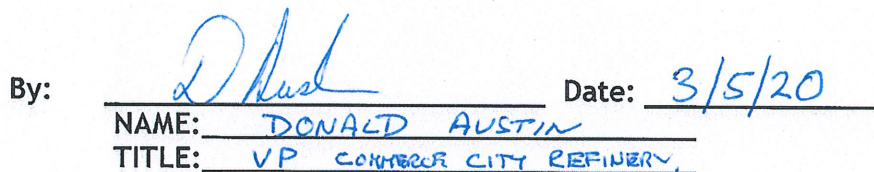 By: D Aust Date: 3/5/20
NAME: DONALD AUSTIN
TITLE: VP COMMERCE CITY REFINERY,